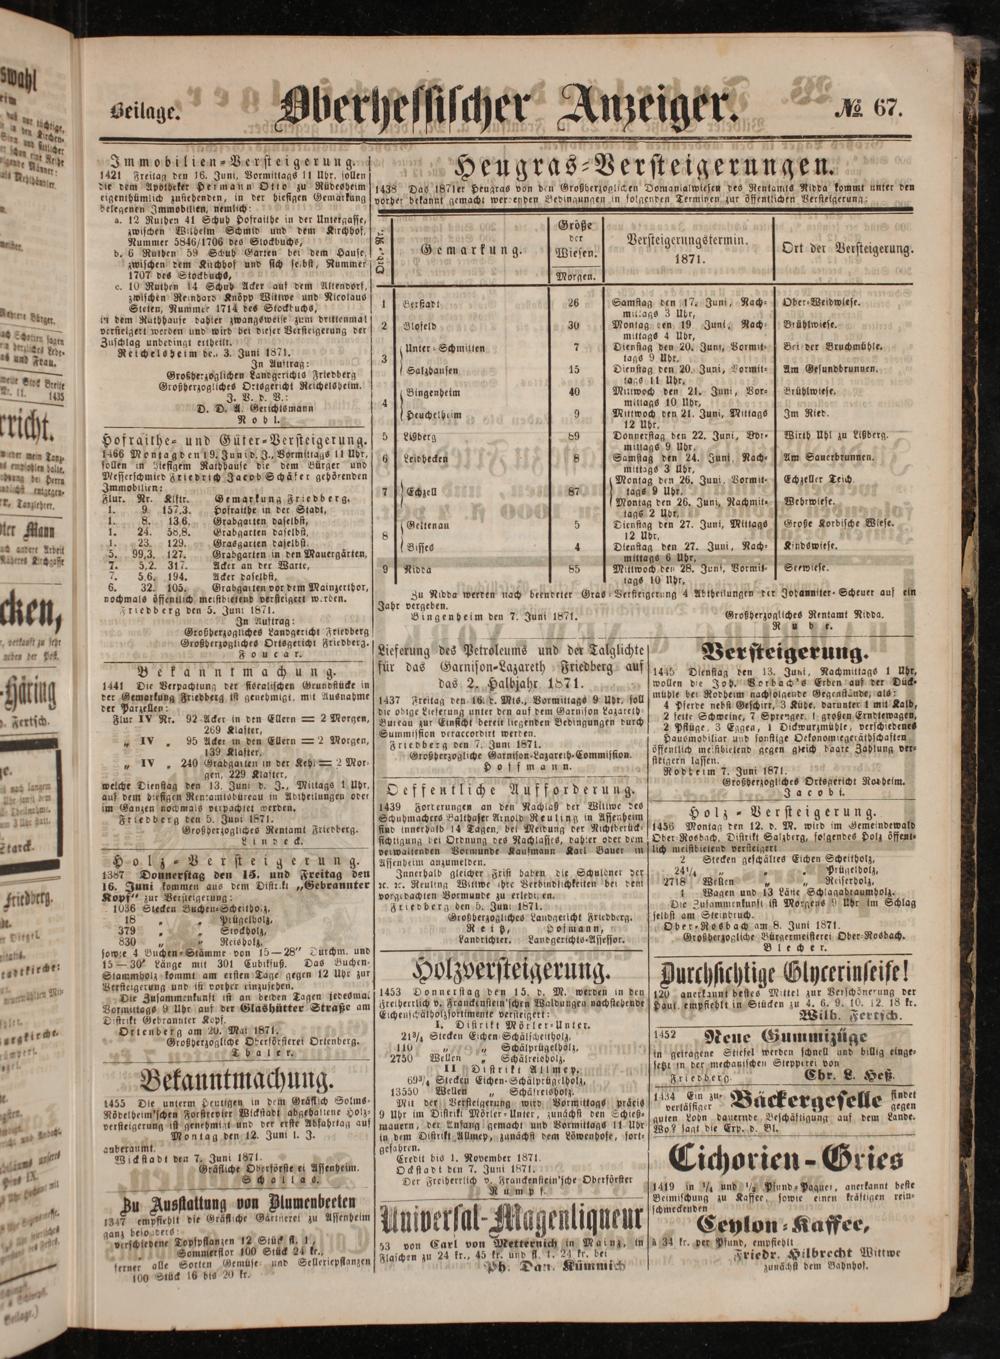 Beilage.
Oberhessischer Anzeiger.
№ 67.
Immobilien-Versteigerung.
1421 Freitag den 16. Juni, Vormittags 11 Uhr, sollen
die dem Apotheker Hermann Otto zu Rüdesheim
eigenthümlich zustehenden, in der hiesigen Gemarkung
belegenen Immobilien, nemlich:
a. 12 Ruthen 41 Schuh Hofraithe in der Untergasse,
zwischen Wilhelm Schmid und dem Kirchhof,
Nummer 5846/1706 des Stockbuchs,
b. 6 Ruthen 59 Schuh Garten bei dem Hause,
zwischen dem Kirchhof und sich selbst, Nummer
1707 des Stockbuchs,
c. 10 Ruthen 14 Schuh Acker auf dem Altendorf,
zwischen Reinhard Knöpp Wittwe und Nicolaus
Steten, Nummer 1714 des Stockbuchs,
in dem Rathhause dahier zwangsweise zum drittenmal
versteigert werden und wird bei dieser Versteigerung der
Zuschlag unbedingt ertheilt.
Reichelsheim den 3. Juni 1871.
In Auftrag:
Großherzoglichen Landgerichts Friedberg
Großherzogliches Ortsgericht Reichelsheim.
J. V. d. V.:
D. D. A. Gerichtsmann
Nohl.
Hofraithe- und Güter-Versteigerung.
1466 Montag den 19. Juni d. J., Vormittags 11 Uhr,
sollen in hiesigem Rathhause die dem Bürger und
Messerschmied Friedrich Jacob Schäfer gehörenden
Immobilien:
Flur. Nr. Klftr. Gemarkung Friedberg.
1. 9 157,3. Hofraithe in der Stadt,
1. 8. 13,6. Grabgarten daselbst,
1. 24. 58,8. Grabgarten daselbst,
1. 23. 129. Grasgarten daselbst,
5. 99,3. 127. Grabgarten in den Mauergärten,
7. 5,2. 317. Acker an der Warte,
7. 5,6. 194. Acker daselbst,
6. 32. 105. Grabgarten vor dem Mainzerthor,
nochmals öffentlich meistbietend versteigert werden.
Friedberg den 5. Juni 1871.
In Auftrag:
Großherzogliches Landgericht Friedberg
Großherzogliches Ortsgericht Friedberg.
Foucar.
Bekanntmachung.
1441 Die Verpachtung der fiscalischen Grundstücke in
der Gemarkung Friedberg ist genehmigt, mit Ausnahme
der Parzellen:
Flur IV Nr. 92 Acker in den Ellern = 2 Morgen,
269 Klafter,
„ IV „ 95 Acker in den Ellern = 2 Morgen,
139 Klafter,
„ IV „ 240 Grabgarten in der Kehl = 2 Mor-
gen, 229 Klafter,
welche Dienstag den 13. Juni d. J., Mittags 1 Uhr,
auf dem hiesigen Rentamtsbüreau in Abtheilungen oder
im Ganzen nochmals verpachtet werden.
Friedberg den 5. Juni 1871.
Großherzogliches Rentamt Friedberg.
Lindeck.
Holz-Versteigerung.
1387 Donnerstag den 15. und Freitag den
16. Juni kommen aus dem Distrikt „Gebrannter
Kopf“ zur Versteigerung:
1036 Stecken Buchen-Scheitholz,
18 „ „ Prügelholz,
379 „ „ Stockholz,
830 „ „ Reisholz,
sowie 4 Buchen-Stämme von 15—28″ Durchm. und
15—30′ Länge mit 301 Cubikfuß. Das Buchen-
Stammholz kommt am ersten Tage gegen 12 Uhr zur
Versteigerung und ist vorher einzusehen.
Die Zusammenkunft ist an beiden Tagen jedesmal
Vormittags 9 Uhr auf der Glashütter Straße am
Distrikt Gebrannter Kopf.
Ortenberg am 20. Mai 1871.
Großherzogliche Oberförsterei Ortenberg.
Thaler.
Bekanntmachung.
1455 Die unterm Heutigen in dem Gräflich Solms-
Rödelheim'schen Forstrevier Wickstadt abgehaltene Holz-
versteigerung ist genehmigt und der erste Abfahrtag auf
Montag den 12. Juni l. J.
anberaumt.
Wickstadt den 7. Juni 1871.
Gräfliche Oberförsterei Assenheim.
Schallas.
Zu Ausstattung von Blumenbeeten
1347 empfiehlt die Gräfliche Gärtnerei zu Assenheim
ganz besonders:
verschiedene Topfpflanzen 12 Stück fl. 1,
Sommerflor 100 Stück 24 kr.,
ferner alle Sorten Gemüse- und Selleriepflanzen
100 Stück 16 bis 20 kr.
Heugras-Versteigerungen.
1438 Das 1871er Heugras von den Großherzoglichen Domanialwiesen des Rentamts Nidda kommt unter den
vorher bekannt gemacht werdenden Bedingungen in folgenden Terminen zur öffentlichen Versteigerung:
Ord.-Nr. Gemarkung. Größe der Wiesen. Morgen. Versteigerungstermin. 1871. Ort der Versteigerung.
1 Berstadt 26 Samstag den 17. Juni, Nach- Ober-Weidwiese.
mittags 3 Uhr,
2 Blofeld 30 Montag den 19 Juni, Nach- Brühlwiese.
mittags 4 Uhr,
3 Unter-Schmitten 7 Dienstag den 20. Juni, Vormit- Bei der Bruchmühle.
tags 9 Uhr,
Salzhausen 15 Dienstag den 20. Juni, Vormit- Am Gesundbrunnen.
tags 11 Uhr,
4 Bingenheim 40 Mittwoch den 21. Juni, Vor- Brühlwiese.
mittags 10 Uhr,
Heuchelheim 9 Mittwoch den 21. Juni, Mittags Im Ried.
12 Uhr,
5 Lißberg 89 Donnerstag den 22. Juni, Vor- Wirth Uhl zu Lißberg.
mittags 9 Uhr,
6 Leidhecken 8 Samstag den 24. Juni, Nach- Am Sauerbrunnen.
mittags 3 Uhr,
7 Echzell 87 Montag den 26. Juni, Vormit- Echzeller Teich.
tags 9 Uhr,
Montag den 26. Juni, Nachmit- Wehrwiese.
tags 2 Uhr,
8 Geltenau 5 Dienstag den 27. Juni, Mittags Große Kordische Wiese.
12 Uhr,
Bisses 4 Dienstag den 27. Juni, Nach- Kindswiese.
mittags 6 Uhr,
9 Nidda 85 Mittwoch den 28. Juni, Vormit- Seewiese.
tags 10 Uhr,
Zu Nidda werden nach beendeter Gras-Versteigerung 4 Abtheilungen der Johanniter-Scheuer auf ein
Jahr vergeben.
Bingenheim den 7. Juni 1871.
Großherzogliches Rentamt Nidda.
Lieferung des Petroleums und der Talglichte
für das Garnison-Lazareth Friedberg auf
das 2. Halbjahr 1871.
1437 Freitag den 16. d. Mts., Vormittags 9 Uhr, soll
die obige Lieferung unter den auf dem Garnison Lazareth-
Bureau zur Einsicht bereit liegenden Bedingungen durch
Summission veraccordirt werden.
Friedberg den 7. Juni 1871.
Großherzogliche Garnison-Lazareth-Commission.
Hoffmann.
Oeffentliche Aufforderung.
1439 Forderungen an den Nachlaß der Wittwe des
Schuhmachers Balthaser Arnold Reuling in Assenheim
sind innerhalb 14 Tagen, bei Meidung der Nichtberück-
sichtigung bei Ordnung des Nachlasses, dahier oder dem
verwaltenden Vormunde Kaufmann Karl Bauer in
Assenheim anzumelden.
Innerhalb gleicher Frist haben die Schuldner der
ꝛc. ꝛc. Reuling Wittwe ihre Verbindlichkeiten bei dem
vorgedachten Vormunde zu erledigen.
Friedberg den 5. Juni 1871.
Großherzogliches Landgericht Friedberg.
Reiß, Hofmann,
Landrichter. Landgerichts-Assessor.
Holzversteigerung.
1453 Donnerstag den 15. d. M. werden in den
Freiherrlich v. Franckenstein'schen Waldungen nachstehende
Eichenschälholzsortimente versteigert:
I. Distrikt Mörler-Unter.
21¾ Stecken Eichen-Schälscheitholz,
110 „ „ Schälprügelholz,
2750 Wellen „ Schälreisholz.
II Distrikt Allmey.
69¾ Stecken Eichen-Schälprügelholz,
13550 Wellen „ Schälreisholz.
Mit der Versteigerung wird Vormittags präcis
9 Uhr im Distrikt Mörler-Unter, zunächst den Schieß-
mauern, der Anfang gemacht und Vormittags 11 Uhr
in dem Distrikt Allmey, zunächst dem Löwenhofe, fort-
gefahren.
Credit bis 1. November 1871.
Ockstadt den 7. Juni 1871.
Der Freiherrlich v. Franckenstein'sche Oberförster
Rumpf.
Universal-Magenliqueur
53 von Carl von Metternich in Mainz, in
Flaschen zu 24 kr., 45 kr. und fl. 1. 24 kr. bei
Ph. Dan. Kümmich
Versteigerung.
1445 Dienstag den 13. Juni, Nachmittags 1 Uhr,
wollen die Joh. Vorbach's Erben auf der Dick-
mühle bei Rodheim nachfolgende Gegenstände, als:
4 Pferde nebst Geschirr, 3 Kühe, darunter 1 mit Kalb,
2 fette Schweine, 7 Sprenger, 1 großen Erndtewagen,
2 Pflüge, 3 Eggen, 1 Dickwurzmühle, verschiedenes
Hausmobiliar und sonstige Oekonomiegeräthschaften
öffentlich meistbietend gegen gleich baare Zahlung ver-
steigern lassen.
Rodheim 7. Juni 1871.
Großherzogliches Ortsgericht Rodheim.
Jacobi.
Holz-Versteigerung.
1456 Montag den 12. d. M. wird im Gemeindewald
Ober-Rosbach, Distrikt Salzberg, folgendes Holz öffent-
lich meistbietend versteigert
2 Stecken geschältes Eichen Scheitholz,
24¼ „ „ „ Prügelholz,
2718 Wellen „ „ Reiserholz,
1 Wagen und 13 Läne Schlagabraumholz.
Die Zusammenkunft ist Morgens 9 Uhr im Schlag
selbst am Steinbruch.
Ober-Rosbach am 8. Juni 1871.
Großherzogliche Bürgermeisterei Ober-Rosbach.
Blecher.
Durchsichtige Glycerinseife!
120 anerkannt bestes Mittel zur Verschönerung der
Haut empfiehlt in Stücken zu 4, 6, 9, 10, 12, 18 kr.
Wilh. Fertsch.
1452 Neue Gummizüge
in getragene Stiefel werden schnell und billig einge-
setzt in der mechanischen Stepperei von
Friedberg. Chr. L. Heß.
1434 Ein zu-
verlässiger Bäckergeselle findet
gegen
guten Lohn dauernde Beschäftigung auf dem Lande.
Wo? sagt die Exp. d. Bl.
Cichorien-Gries
1419 in ¼ und ½ Pfund-Paquet, anerkannt beste
Beimischung zu Kaffee, sowie einen kräftigen rein-
schmeckenden
Ceylon-Kaffee,
à 34 kr. per Pfund, empfiehlt
Friedr. Hilbrecht Wittwe
zunächst dem Bahnhof.